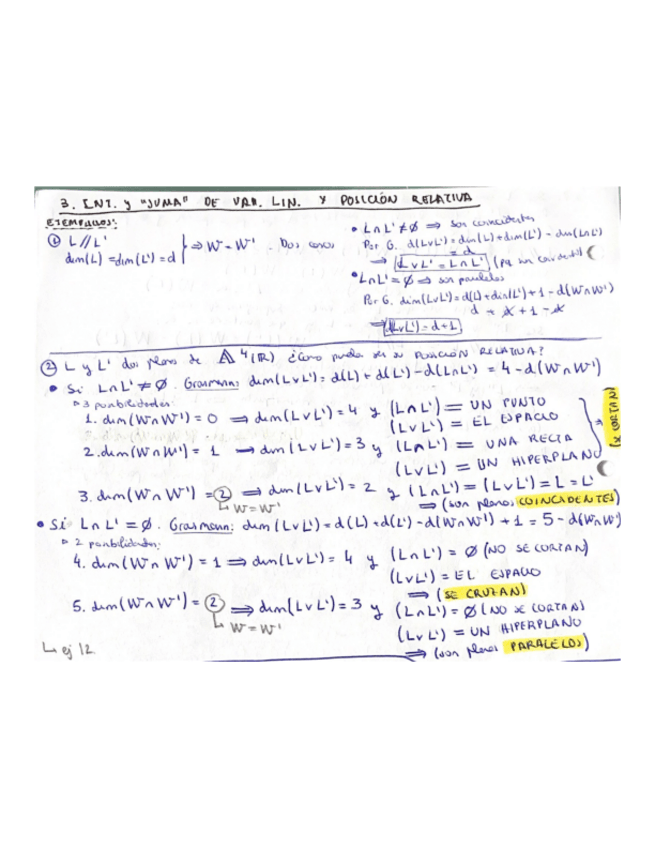 3. INT. y "SUMA" DE VAR. LIN. Y POSICIÓN RELATIVA
EJEMPLOS:
① L//L'
dim(L) = dim(L') = d
⇒ W = W'. Dos casos
• L∩L' ≠ ∅ ⇒ son coincidentes
Por G. d(L∨L') = dim(L) + dim(L') - dim(L∩L')
= d
⇒ L∨L' = L∩L'
• L∩L' = ∅ ⇒ son paralelos
Por G. dim(L∨L') = d(L) + dim(L') + 1 - d(W∩W')
d + d + 1 - d
⇒ d(L∨L') = d+1
② L y L' dos planos de A⁴(ℝ) ¿Cómo puede ser su POSICIÓN RELATIVA?
• Si L∩L' ≠ ∅. Grassmann: dim(L∨L') = d(L) + d(L') - d(L∩L') = 4 - d(W∩W')
▹ 3 posibilidades:
1. dim(W∩W') = 0 ⇒ dim(L∨L') = 4 y (L∩L') = UN PUNTO
(L∨L') = EL ESPACIO
2. dim(W∩W') = 1 ⇒ dim(L∨L') = 3 y (L∩L') = UNA RECTA
(L∨L') = UN HIPERPLANO
⇒ (SE CORTAN)
3. dim(W∩W') = 2 ⇒ dim(L∨L') = 2 y (L∩L') = (L∨L') = L = L'
↳ W = W'
⇒ (son planos COINCIDENTES)
• Si L∩L' = ∅. Grassmann: dim(L∨L') = d(L) + d(L') - d(W∩W') + 1 = 5 - d(W∩W')
▹ 2 posibilidades:
4. dim(W∩W') = 1 ⇒ dim(L∨L') = 4 y (L∩L') = ∅ (NO SE CORTAN)
(L∨L') = EL ESPACIO
⇒ (SE CRUZAN)
5. dim(W∩W') = 2 ⇒ dim(L∨L') = 3 y (L∩L') = ∅ (NO SE CORTAN)
↳ W = W'
(L∨L') = UN HIPERPLANO
⇒ (son planos PARALELOS)
↳ ej 12